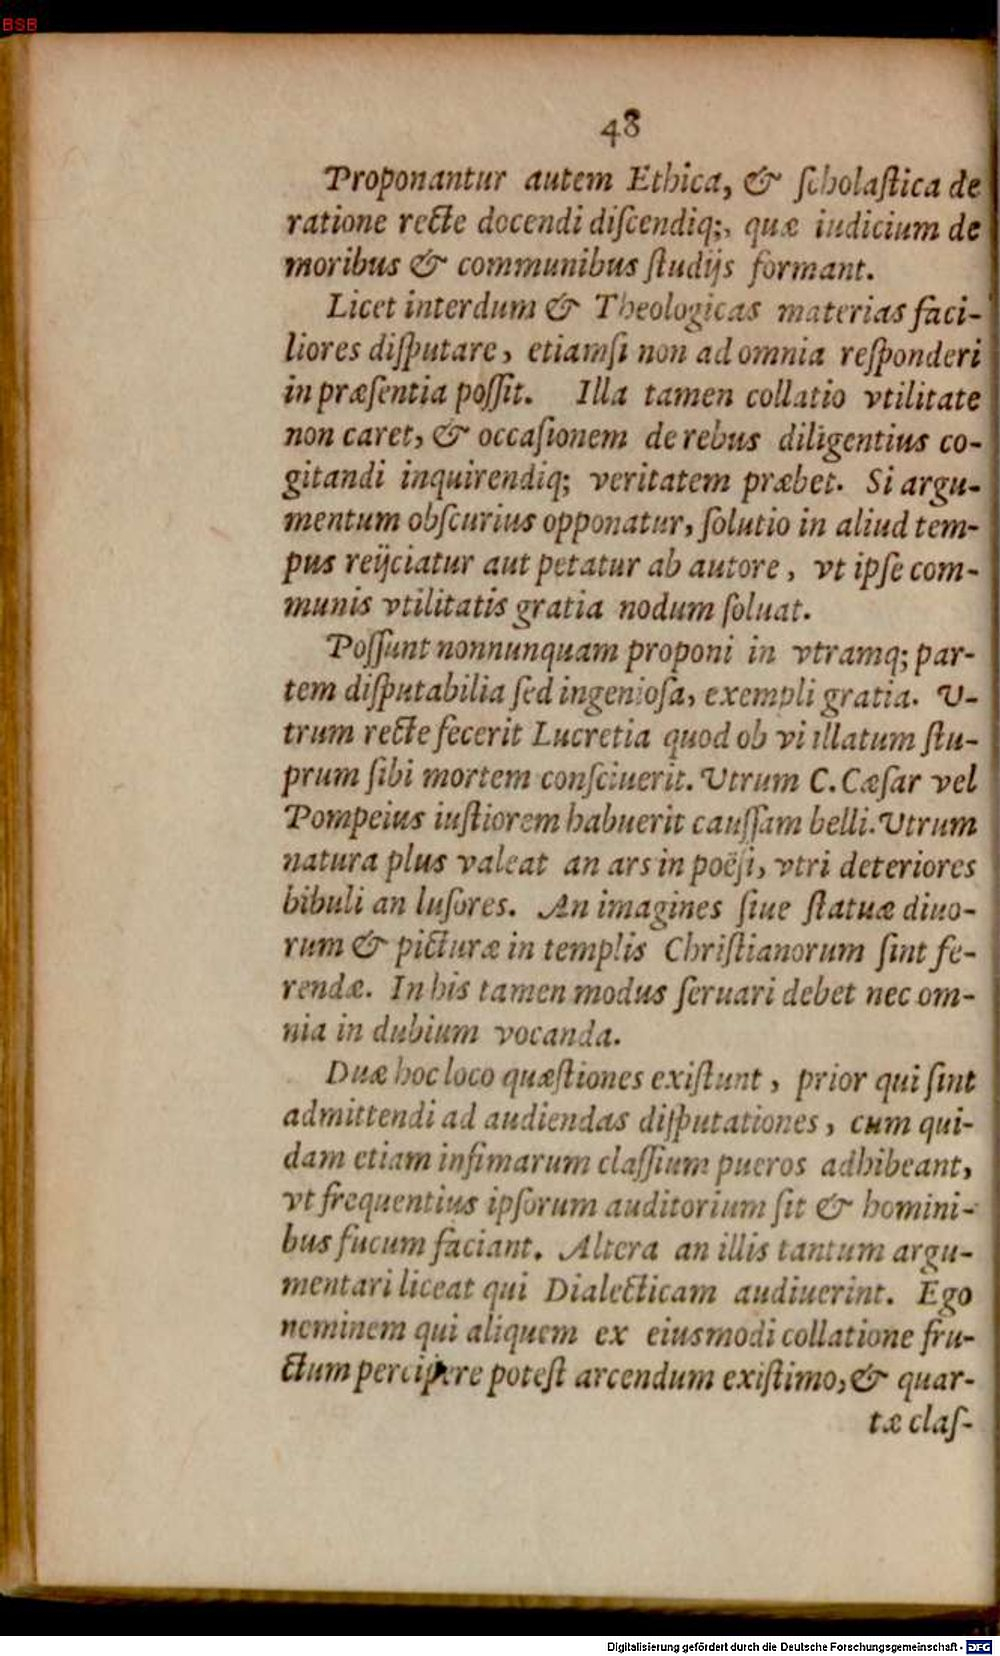 BSB
48
Proponantur autem Ethica, & ſcholaſtica de
ratione recte docendi diſcendiq;, quæ iudicium de
moribus & communibus ſtudijs formant.
Licet interdum & Theologicas materias faci-
liores diſputare, etiamſi non ad omnia reſponderi
in præſentia poſſit. Illa tamen collatio vtilitate
non caret, & occaſionem de rebus diligentius co-
gitandi inquirendiq; veritatem præbet. Si argu-
mentum obſcurius opponatur, ſolutio in aliud tem-
pus reijciatur aut petatur ab autore, vt ipſe com-
munis vtilitatis gratia nodum ſoluat.
Poſſunt nonnunquam proponi in vtramq; par-
tem diſputabilia ſed ingenioſa, exempli gratia. V-
trum recte fecerit Lucretia quod ob vi illatum ſtu-
prum ſibi mortem conſciuerit. Vtrum C. Cæſar vel
Pompeius iuſtiorem habuerit cauſſam belli. Vtrum
natura plus valeat an ars in poëſi, vtri deteriores
bibuli an luſores. An imagines ſiue ſtatuæ diuo-
rum & picturæ in templis Chriſtianorum ſint fe-
rendæ. In his tamen modus ſeruari debet nec om-
nia in dubium vocanda.
Duæ hoc loco quæſtiones exiſtunt, prior qui ſint
admittendi ad audiendas diſputationes, cum qui-
dam etiam infimarum claſſium pueros adhibeant,
vt frequentius ipſorum auditorium ſit & homini-
bus fucum faciant. Altera an illis tantum argu-
mentari liceat qui Dialecticam audiuerint. Ego
neminem qui aliquem ex eiusmodi collatione fru-
ctum percipere poteſt arcendum exiſtimo, & quar-
tæ claſ-
Digitalisierung gefördert durch die Deutsche Forschungsgemeinschaft - DFG